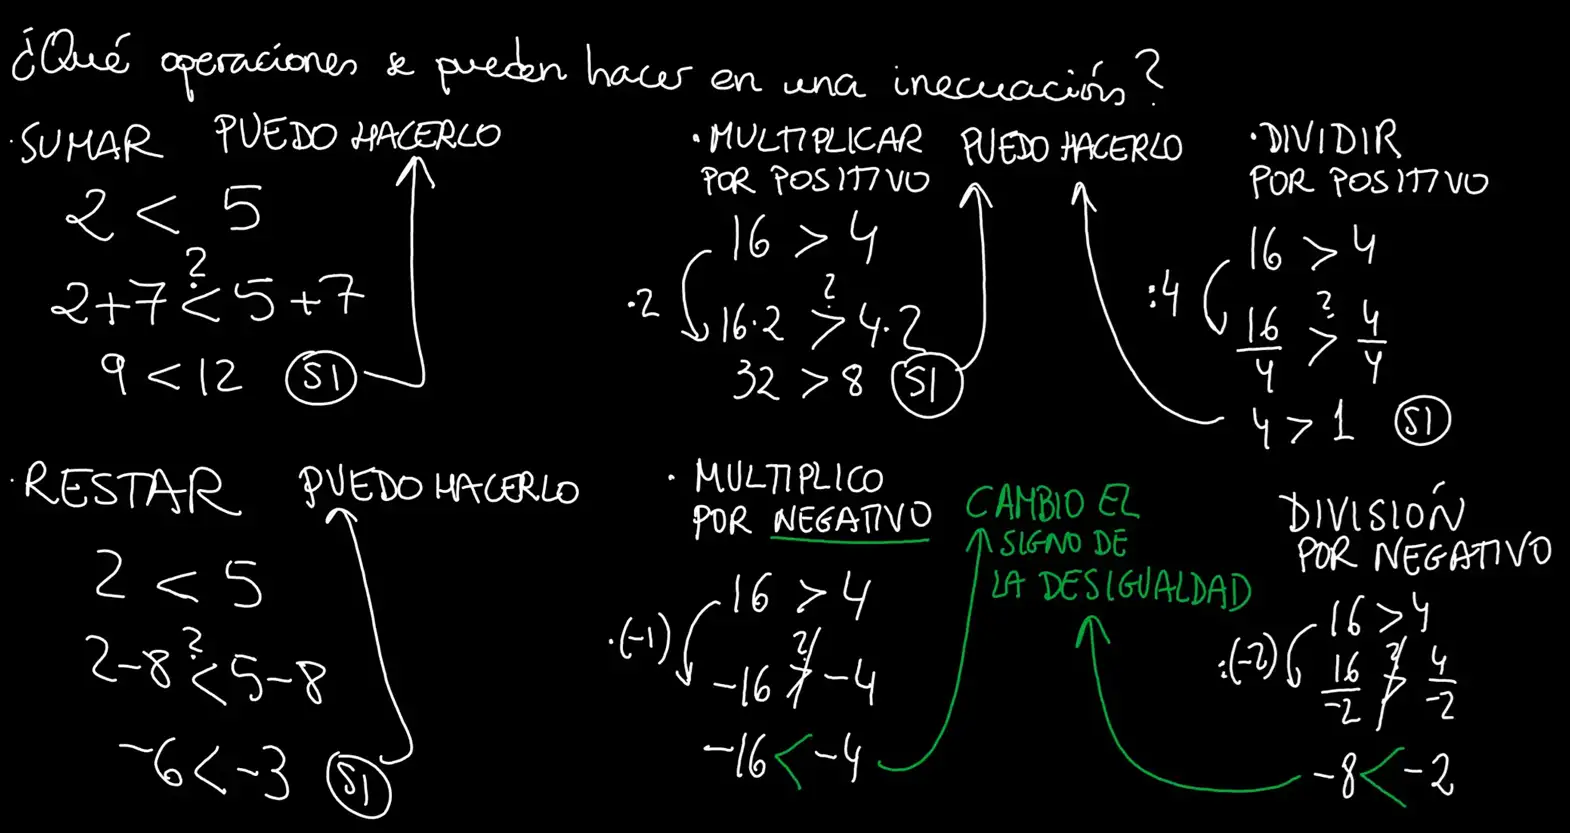 ¿Qué operaciones se pueden hacer en una inecuación?
·SUMAR PUEDO HACERLO
2 < 5
?
2+7 < 5+7
9 < 12 SI
·MULTIPLICAR PUEDO HACERLO
POR POSITIVO
16 > 4
·2
?
16·2 > 4·2
32 > 8 SI
·DIVIDIR
POR POSITIVO
16 > 4
:4
?
16/4 > 4/4
4 > 1 SI
·RESTAR PUEDO HACERLO
2 < 5
?
2-8 < 5-8
-6 < -3 SI
· MULTIPLICO
POR NEGATIVO
16 > 4
·(-1)
?
-16 > -4
-16 < -4
CAMBIO EL
SIGNO DE
LA DESIGUALDAD
DIVISIÓN
POR NEGATIVO
16 > 4
:(-2)
?
16/-2 > 4/-2
-8 < -2